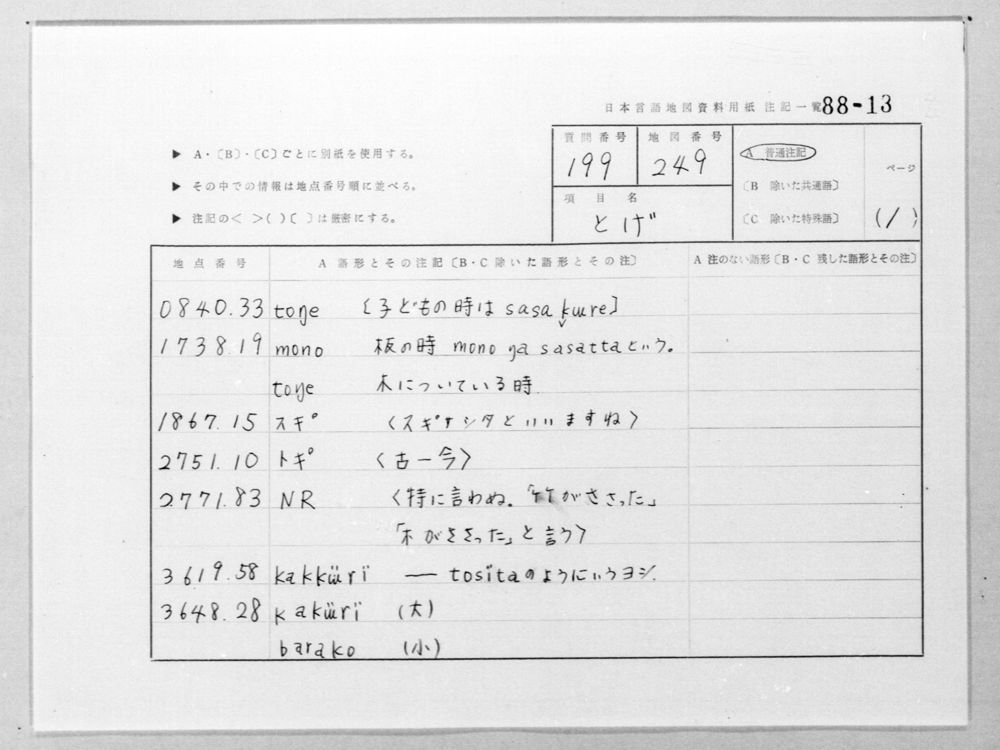 日本言語地図資料用紙 注記一覧 88-13
▶ A・〔B〕・〔C〕ごとに別紙を使用する。
▶ その中での情報は地点番号順に並べる。
▶ 注記の< >( )〔 〕は厳密にする。
質問番号 199
地図番号 249
項目名 とげ
A 普通注記
〔B 除いた共通語〕
〔C 除いた特殊語〕
ページ
(1)
地点番号 A 語形とその注記〔B・C除いた語形とその注〕 A 注のない語形〔B・C 残した語形とその注〕
0840.33 toŋe 〔子どもの時は sasakɯre〕
1738.19 mono 板の時 mono ŋa sasattaという。
toŋe 木についている時
1867.15 スギ゜ 〈スギ゜サシタといいますね〉
2751.10 トギ゜ 〈古一今〉
2771.83 NR 〈特に言わぬ。「竹がささった」
「木がささった」と言う〉
3619.58 kakkɯ̈rï ― tosïtaのようにいうヨシ.
3648.28 kakɯ̈rï (大)
barako (小)